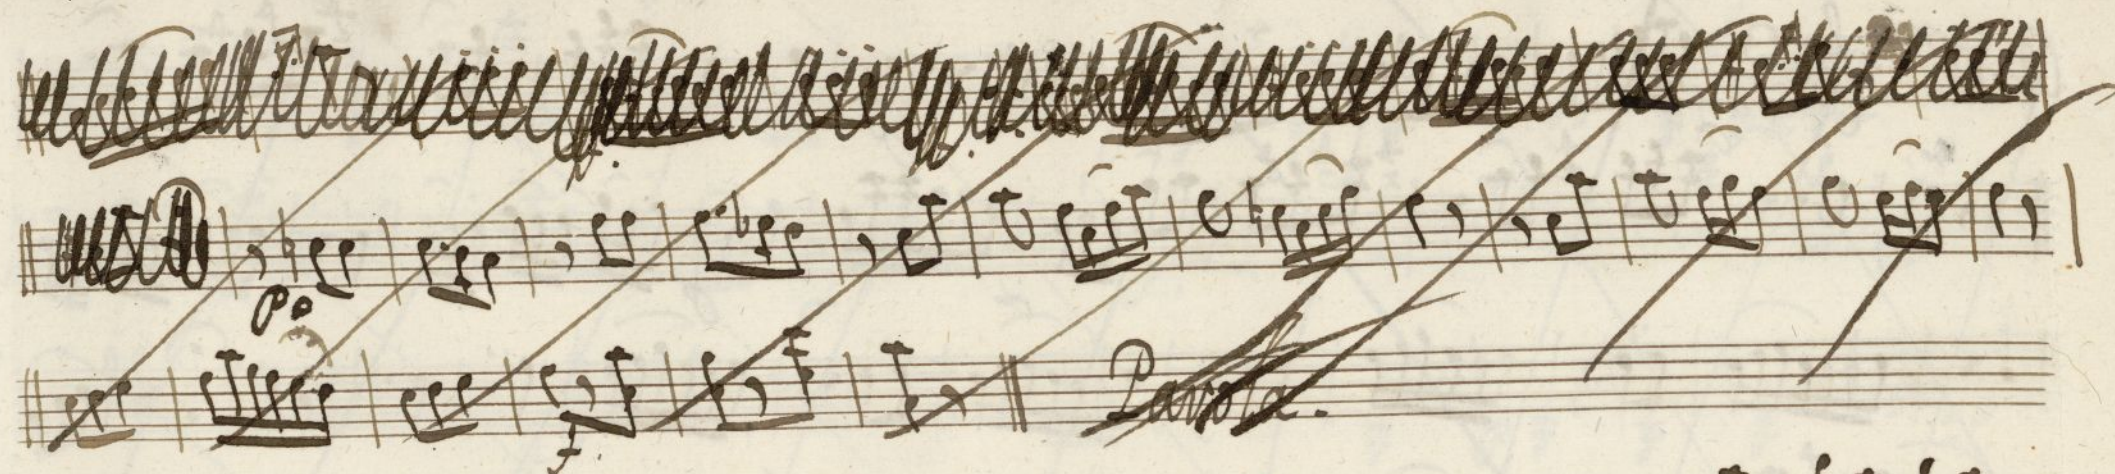 po
f
Parola.